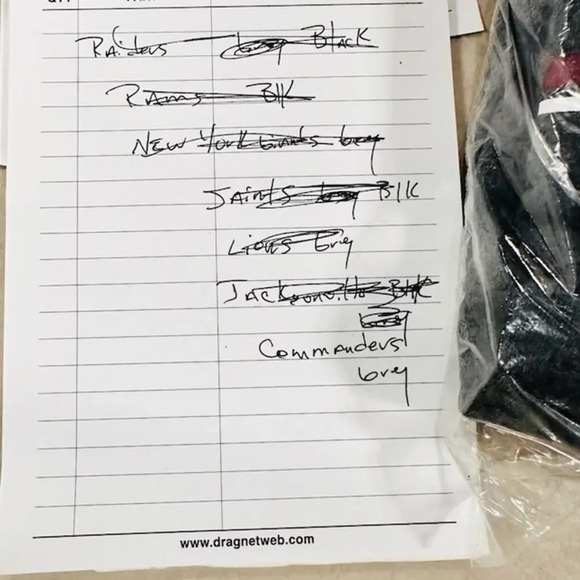 Raiders Grey Black
Rams Blk
New York Giants Grey
Saints Grey Blk
Lions Grey
Jacksonville Blk
Grey
Commanders
Grey
www.dragnetweb.com